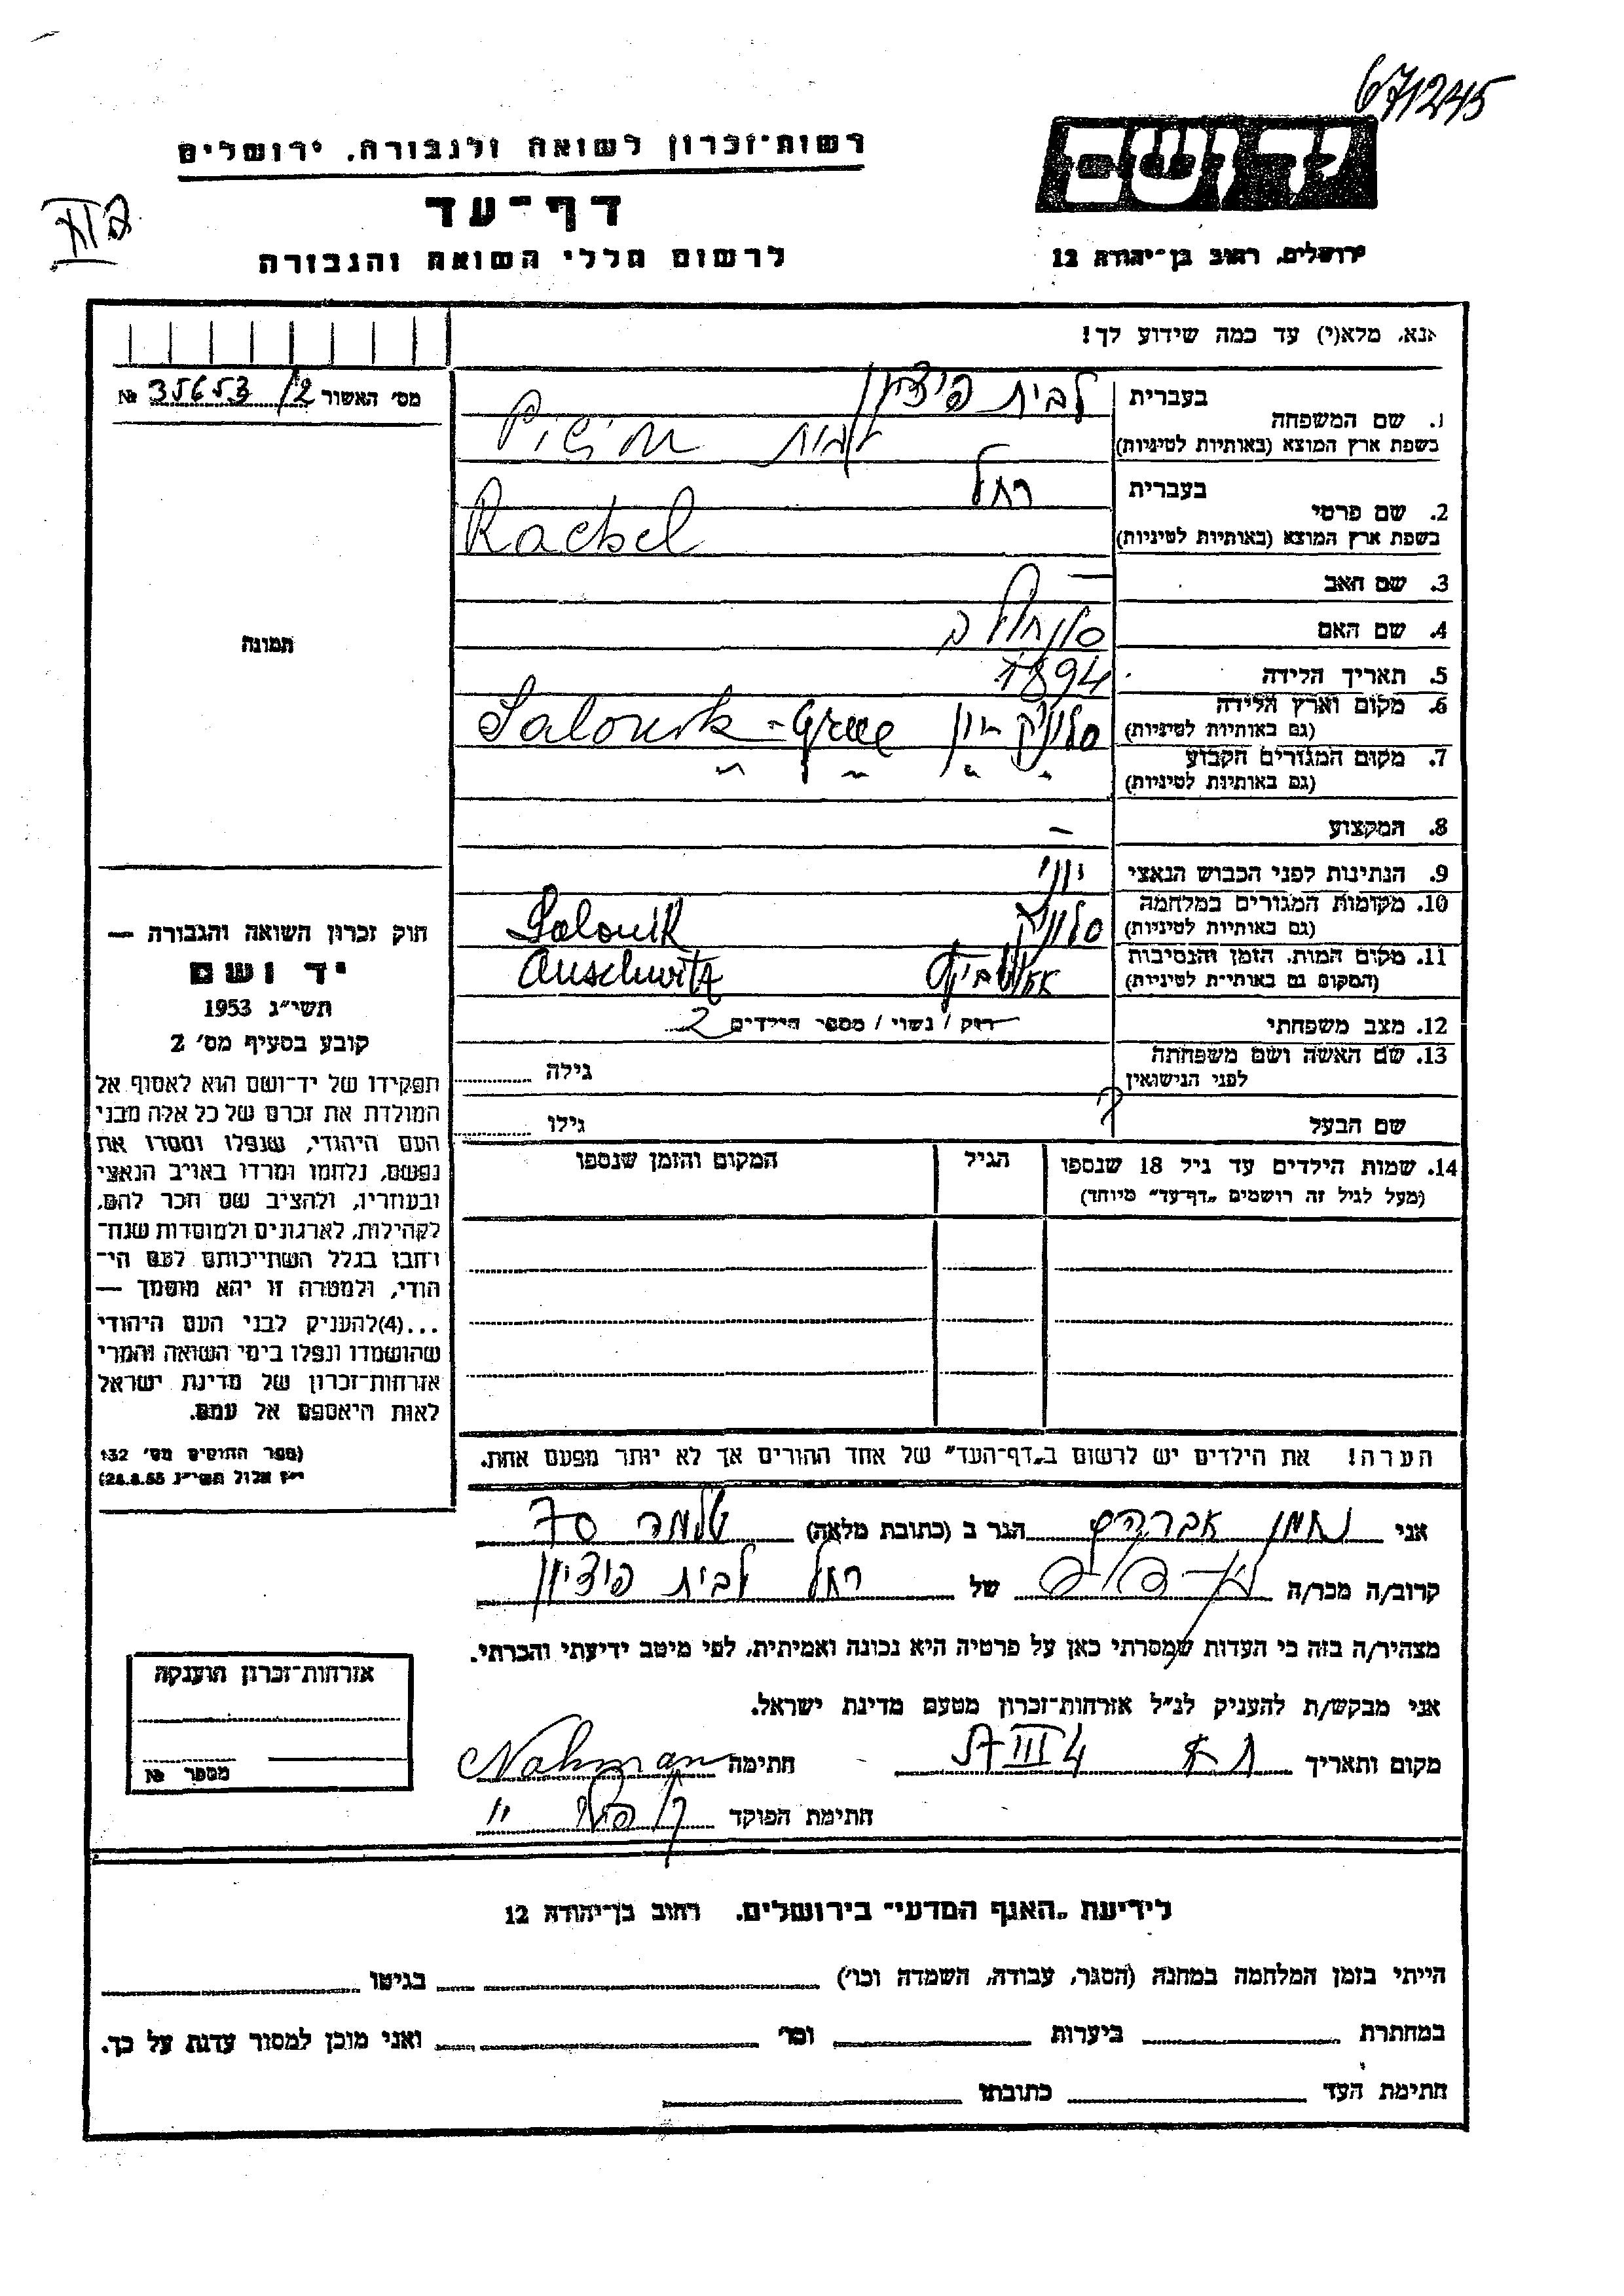 671245
רשות־זכרון לשואה ולגבורה, ירושלים
יד ושם
דף־עד
לרשום חללי השואה והגבורה
ירושלים, רחוב בן־יהודה 12
אנא, מלא(י) עד כמה שידוע לך!
מס׳ האשור 35653/12 №
1. שם המשפחה
בעברית לבית פידיון
בשפת ארץ המוצא (באותיות לטיניות)
2. שם פרטי
בעברית רחל
בשפת ארץ המוצא (באותיות לטיניות) Rachel
3. שם האב —
4. שם האם
5. תאריך הלידה 1894
6. מקום וארץ הלידה
(גם באותיות לטיניות) סלוניק יון Salonik - Grece
7. מקום המגורים הקבוע
(גם באותיות לטיניות) " " " " "
8. המקצוע —
9. הנתינות לפני הכבוש הנאצי יוני
10. מקומות המגורים במלחמה
(גם באותיות לטיניות) סלוניק Salonik
11. מקום המות, הזמן והנסיבות
(המקום גם באותיות לטיניות) אושביץ Auschwitz
12. מצב משפחתי רוק / נשוי / מספר הילדים 2
13. שם האשה ושם משפחתה
לפני הנישואין גילה
שם הבעל ? גילו
14. שמות הילדים עד גיל 18 שנספו
(מעל לגיל זה רושמים „דף־עד״ מיוחד)
הגיל
המקום והזמן שנספו
הערה! את הילדים יש לרשום ב„דף־העד״ של אחד ההורים אך לא יותר מפעם אחת.
תמונה
חוק זכרון השואה והגבורה —
יד ושם
תשי״ג 1953
קובע בסעיף מס׳ 2
תפקידו של יד־ושם הוא לאסוף אל
המולדת את זכרם של כל אלה מבני
העם היהודי, שנפלו ומסרו את
נפשם, נלחמו ומרדו באויב הנאצי
ובעוזריו, ולהציב שם וזכר להם,
לקהילות, לארגונים ולמוסדות שנח־
רבו בגלל השתייכותם לעם הי־
הודי, ולמטרה זו יהא מוסמך —
...(4)להעניק לבני העם היהודי
שהושמדו ונפלו בימי השואה והמרי
אזרחות־זכרון של מדינת ישראל
לאות היאספם אל עמם.
(ספר החוקים מס׳ 132
י״ז אלול תשי״ג 28.8.53)
אני נחמן אברהם הגר ב (כתובת מלאה) שלמה 70
קרוב/ה מכר/ה של רחל לבית פידיון
מצהיר/ה בזה כי העדות שמסרתי כאן על פרטיה היא נכונה ואמיתית, לפי מיטב ידיעתי והכרתי.
אני מבקש/ת להעניק לנ״ל אזרחות־זכרון מטעם מדינת ישראל.
מקום ותאריך חתימה Nahman
חתימת הפוקד
אזרחות־זכרון הוענקה
מספר №
לידיעת „האגף המדעי״ בירושלים, רחוב בן־יהודה 12
הייתי בזמן המלחמה במחנה (הסגר, עבודה, השמדה וכו׳) בגיטו
במחתרת ביערות וכו׳ ואני מוכן למסור עדות על כך.
חתימת העד כתובתו